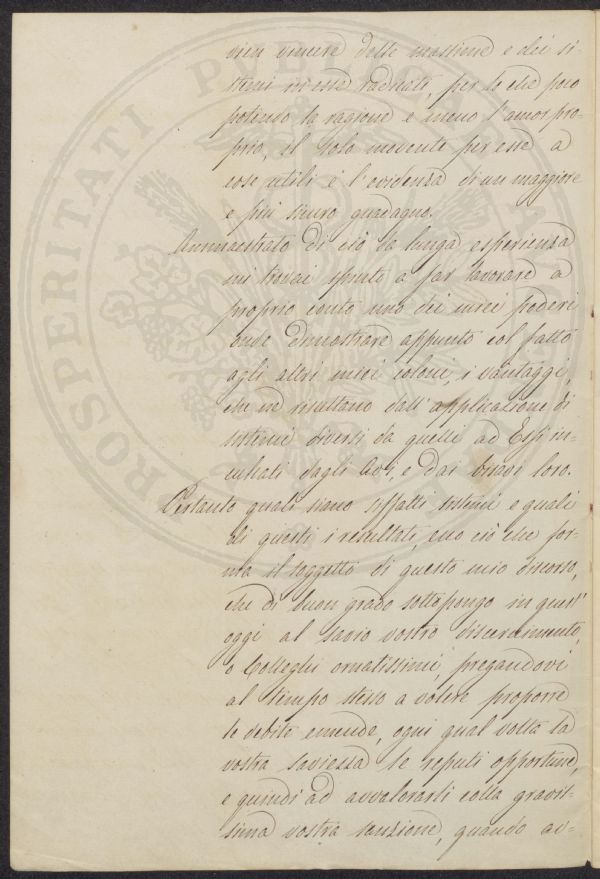 vien vincere delle massime e dei si-
stemi in esse radicati, per lo che poco
potendo la ragione e meno l'amor pro-
prio, il solo movente per esse a
cose utili è l'evidenza di un maggiore
e più sicuro guadagno.
Ammaestrato di ciò da lunga esperienza
mi trovai spinto a far lavorare a
proprio conto uno dei miei poderi
onde dimostrare appunto col fatto
agli altri miei coloni, i vantaggi,
che ne risultano dall'applicazione di
sistemi diversi da quelli ad Essi in-
culcati dagli Avi, e dai bisavi loro.
Pertanto quali siano siffatti sistemi e quali
di questi i resultati, sono ciò che for-
ma il soggetto di questo mio discorso,
che di buon grado sottopongo in quest'
oggi al savio vostro discernimento,
o Colleghi ornatissimi, pregandovi
al tempo stesso a volere proporre
le debite emende, ogni qual volta la
vostra saviezza le reputi opportune,
e quindi ad avvalorarli colla gravis-
sima vostra sanzione, quando av-
PROSPERITATI PUBLICAE